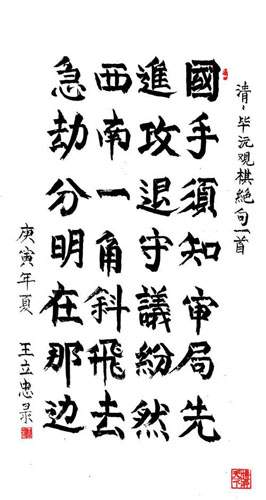 清、毕沅观棋絕句一首
國手須知审局先
進攻退守議紛然
西南一角斜飛去
急劫分明在那边
庚寅年夏
王立忠录